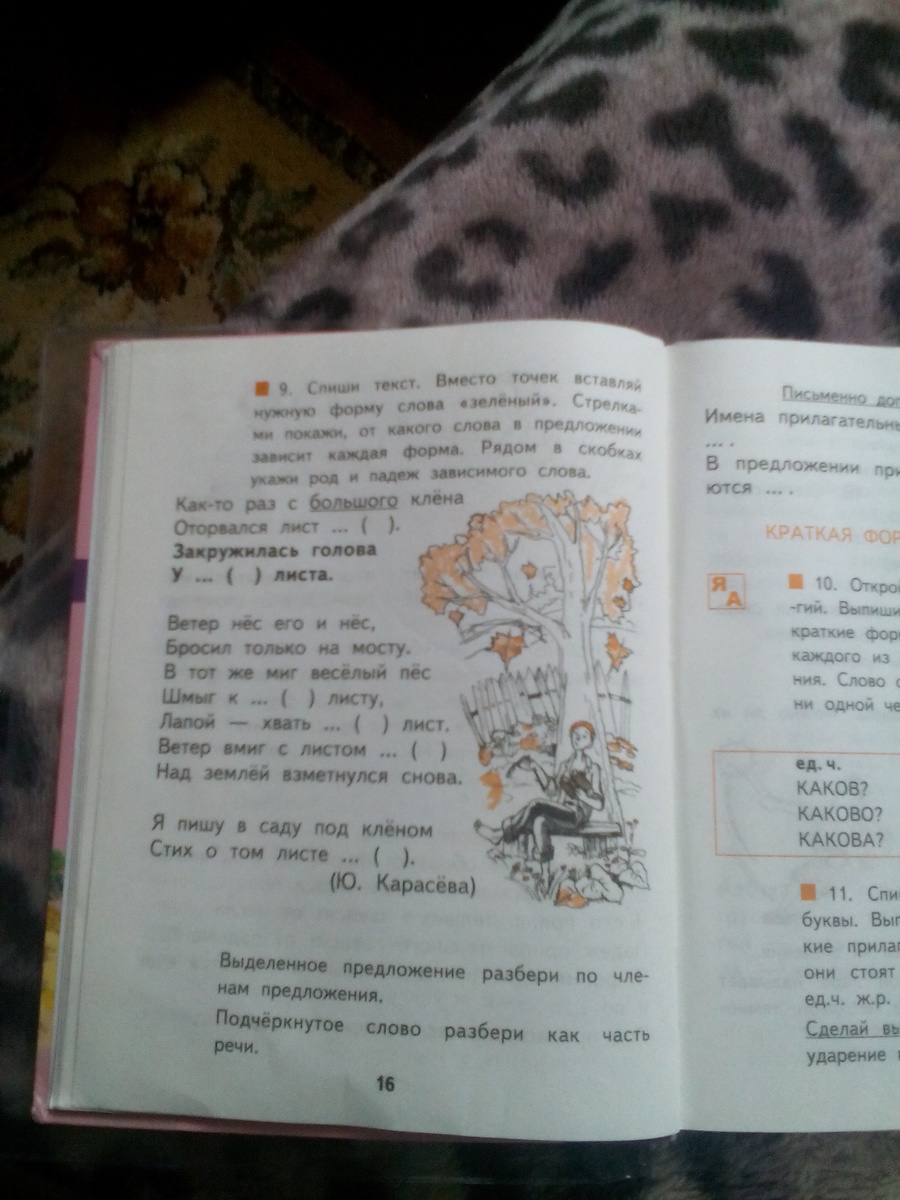 9. Спиши текст. Вместо точек вставляй
нужную форму слова «зелёный». Стрелка-
ми покажи, от какого слова в предложении
зависит каждая форма. Рядом в скобках
укажи род и падеж зависимого слова.
Как-то раз с большого клёна
Оторвался лист ... ( ).
Закружилась голова
У ... ( ) листа.
Ветер нёс его и нёс,
Бросил только на мосту.
В тот же миг весёлый пёс
Шмыг к ... ( ) листу,
Лапой — хвать ... ( ) лист.
Ветер вмиг с листом ... ( )
Над землёй взметнулся снова.
Я пишу в саду под клёном
Стих о том листе ... ( ).
(Ю. Карасёва)
Выделенное предложение разбери по чле-
нам предложения.
Подчёркнутое слово разбери как часть
речи.
16
Письменно
Имена
... .
В предложении
ются ... .
КРАТКАЯ
Я
А
10.
-гий.
краткие
каждого из
ния. Слово
ни одной
ед. ч.
КАКОВ?
КАКОВО?
КАКОВА?
11.
буквы.
кие
они стоят
ед.ч. ж.р.
Сделай
ударение